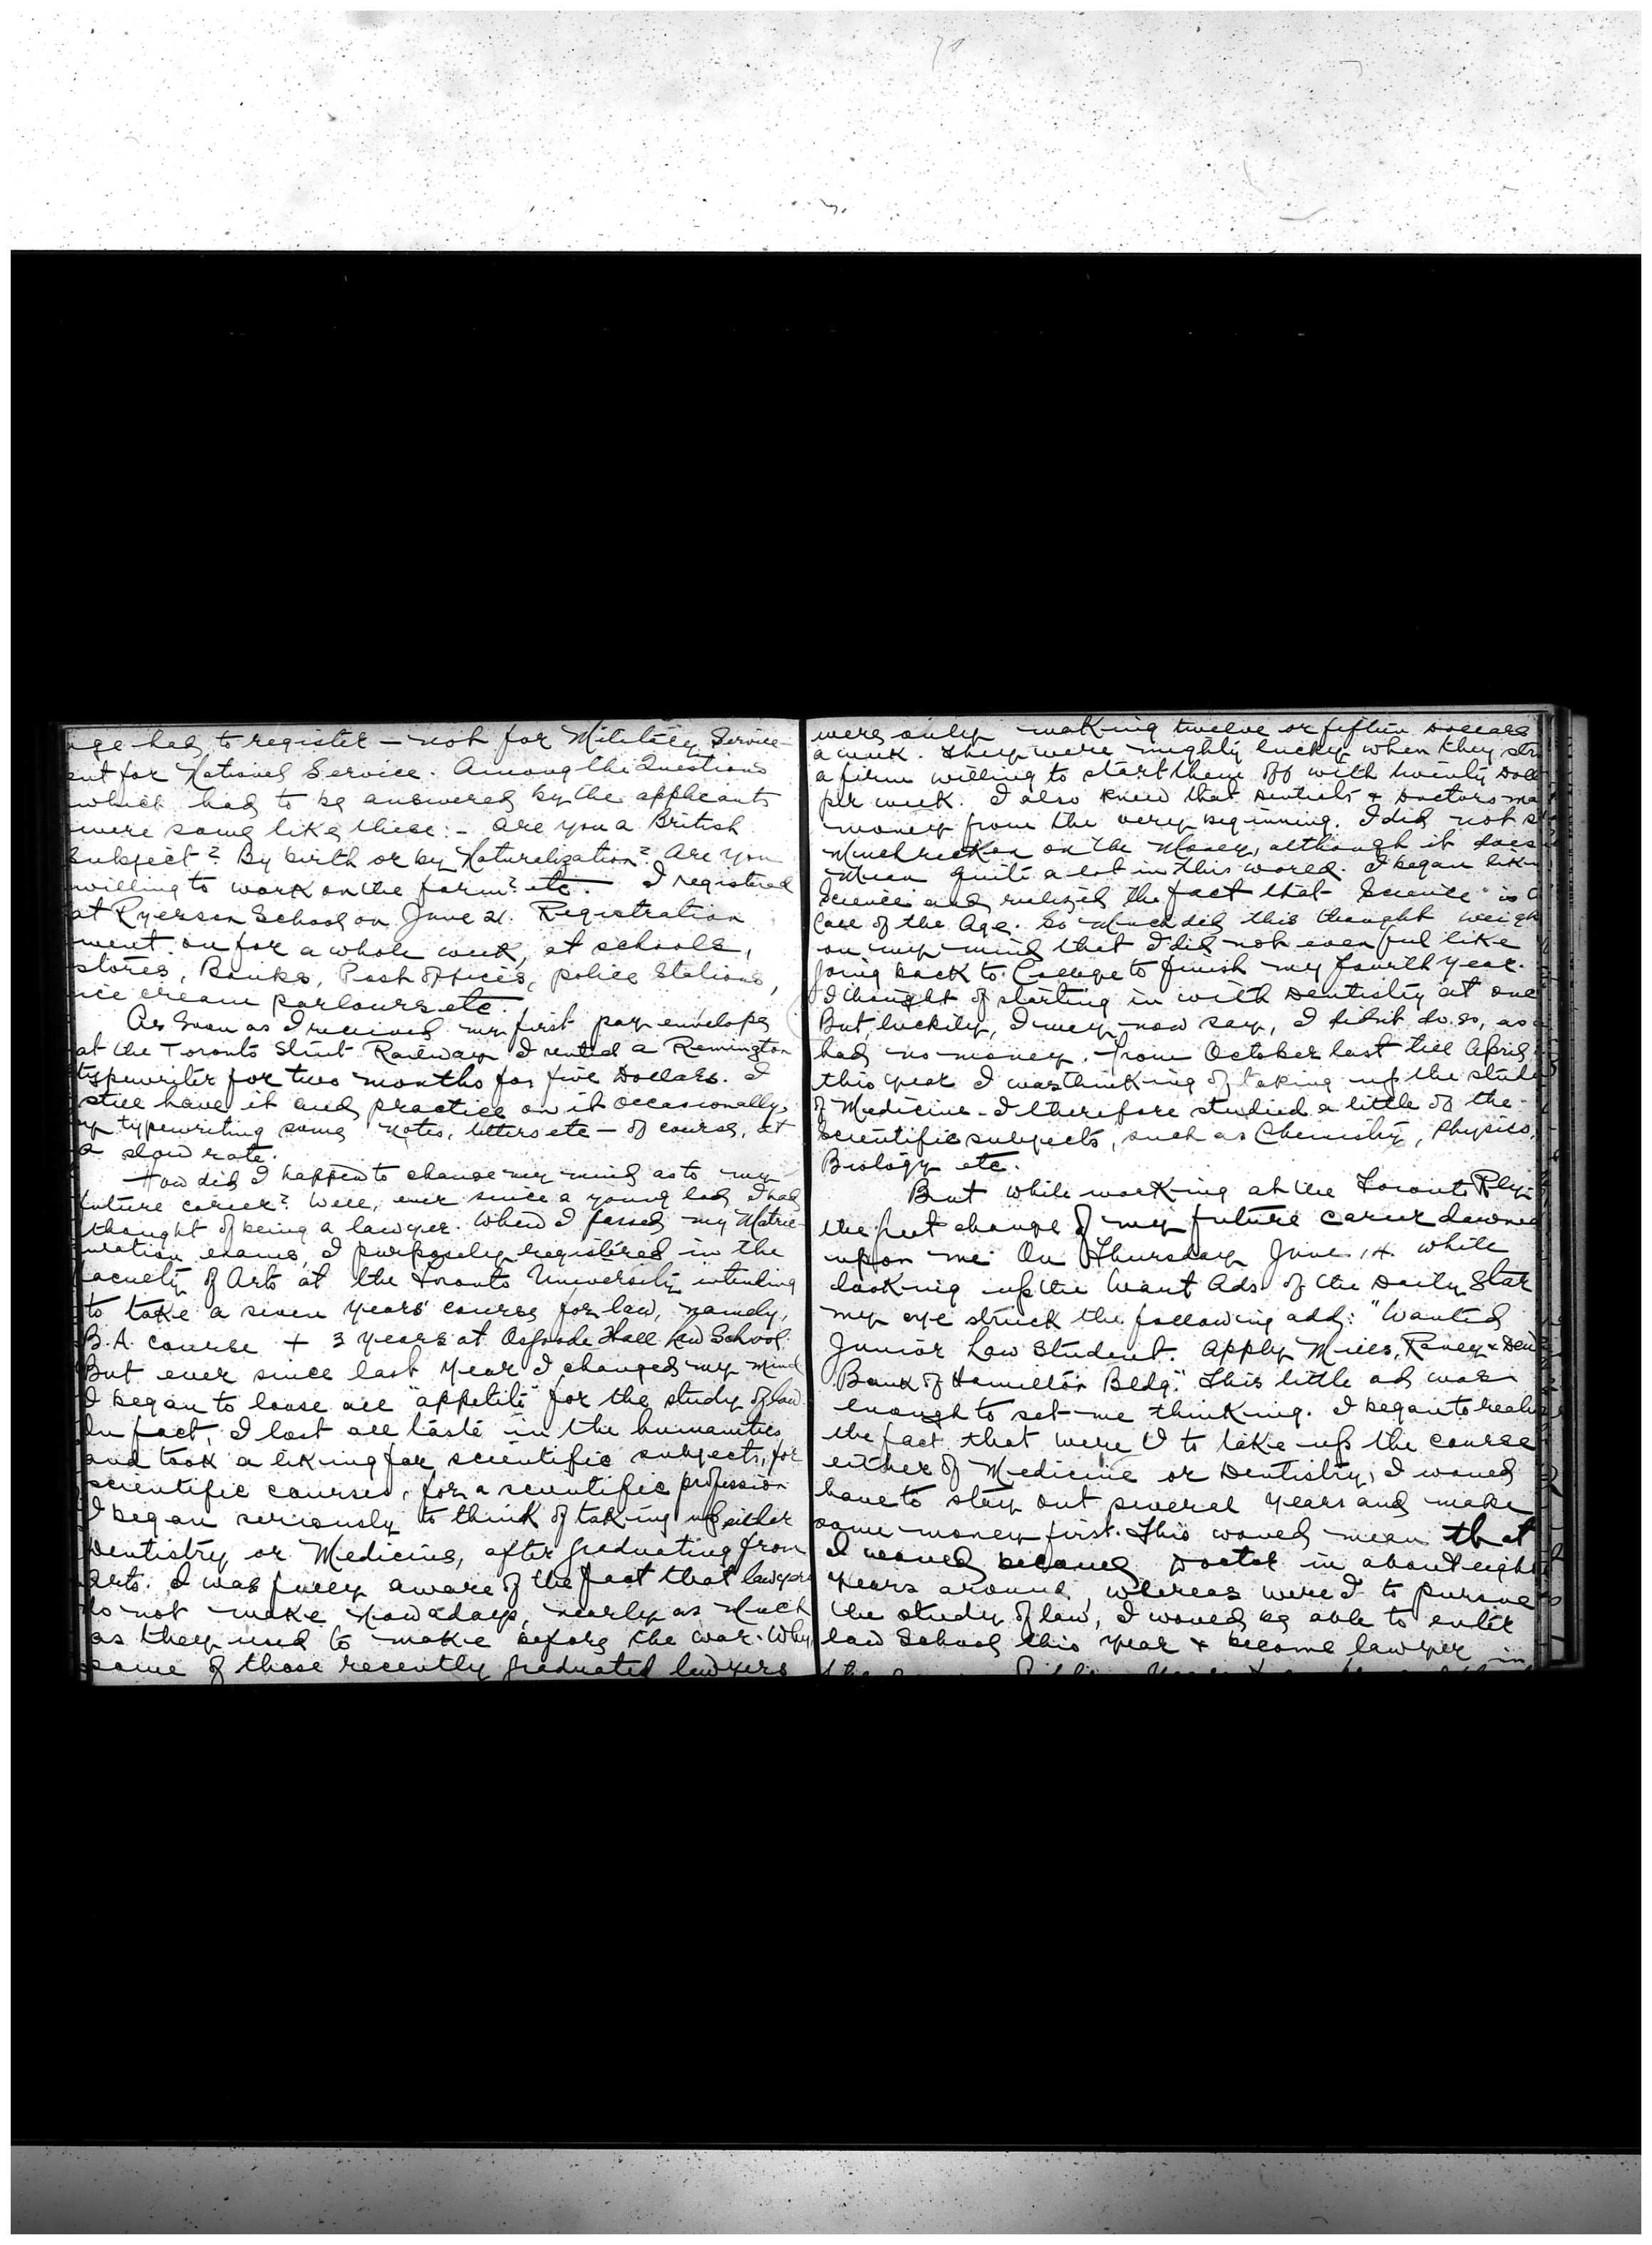 age had to register — not for Military Service
but for National Service. Among the Questions
which had to be answered by the applicants
were some like these:- Are you a British
subject? By birth or by Naturalization? Are you
willing to work on the farm? etc. I registered
at Ryerson School on June 21. Registration
went on for a whole week, at schools,
stores, Banks, Post offices, police stations,
ice cream parlours etc.
As soon as I received my first pay envelope
at the Toronto Street Railway I rented a Remington
typewriter for two months for five Dollars. I
still have it and practice on it occasionally,
by typewriting some notes, letters etc — of course, at
a slow rate.
How did I happen to change my mind as to my
future career? Well, ever since a young lad I had
thought of being a lawyer. When I passed my Matric-
ulation exams, I purposely registered in the
faculty of Arts at the Toronto University intending
to take a seven years' course for law, namely,
B.A. course + 3 years at Osgoode Hall Law School.
But ever since last year I changed my mind
I began to loose all "appetite" for the study of law
In fact, I lost all taste in the humanities,
and took a liking for scientific subjects, for
scientific courses, for a scientific profession
I began seriously to think of taking up either
Dentistry or Medicine, after graduating from
Arts. I was fully aware of the fact that lawyers
do not make nowadays, nearly as much
as they used to make before the war. Why,
some of those recently graduated lawyers
were only making twelve or fifteen Dollars
a week. They were mighty lucky when they
a firm willing to start them off with twenty Doll
per week. I also knew that Dentists & Doctors
money from the very beginning. I did not
much reckon on the Money, although it does
mean quite a lot in this world. I began
Science and realized the fact that "Science" is
of the Age. So much did this thought weigh
on my mind that I did not even feel like
going back to College to finish my fourth year.
I thought of starting in with Dentistry at once
But luckily, I may now say, I didn't do so, as
had no money. From October last till April
this year I was thinking of taking up the
of Medicine — I therefore studied a little of the
scientific subjects, such as Chemistry, Physics,
Biology etc.
But while working at the Toronto Rly.
the change of my future career dawned
upon me. On Thursday June 14. while
looking up the Want Ads of the Daily Star
my eye struck the following add: "Wanted
Junior Law Student. Apply Mills, Raney &
Bank of Hamilton Bldg." This little ad was
enough to set me thinking. I began to
the fact that were I to take up the course
either of Medicine or Dentistry, I would
have to stay out several years and make
some money first. This would mean that
I would become Doctor in about eight
years around, whereas were I to pursue
the study of law, I would be able to enter
law School this year & become lawyer in